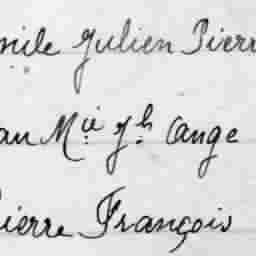 mile Julien Pierr
an Mie Jh Ange
ierre François